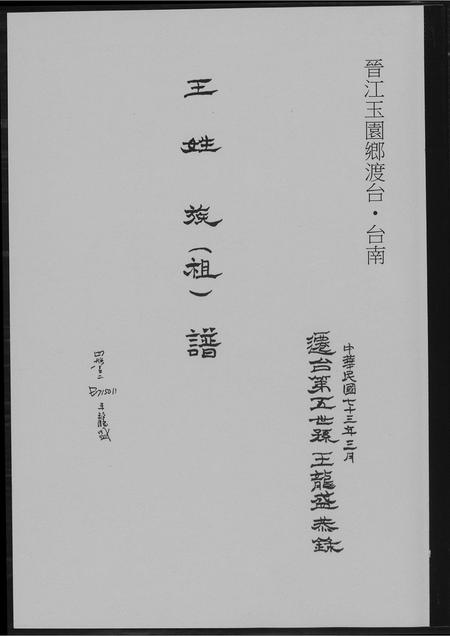 晉江玉園鄉渡台・台南
中華民國七十三年三月
遷台第五世孫 王龍盛 恭錄
王姓族(祖)譜
王龍盛